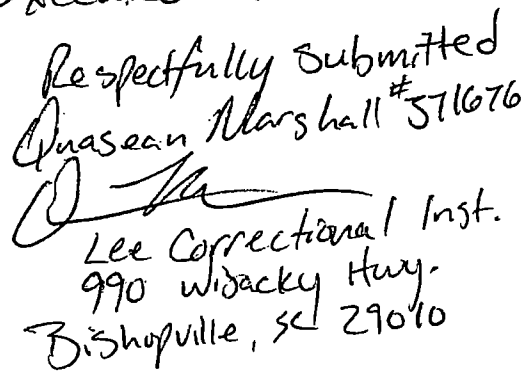 Respectfully Submitted
Quasean Marshall #371676
Lee Correctional Inst.
990 Wisacky Hwy.
Bishopville, SC 29010